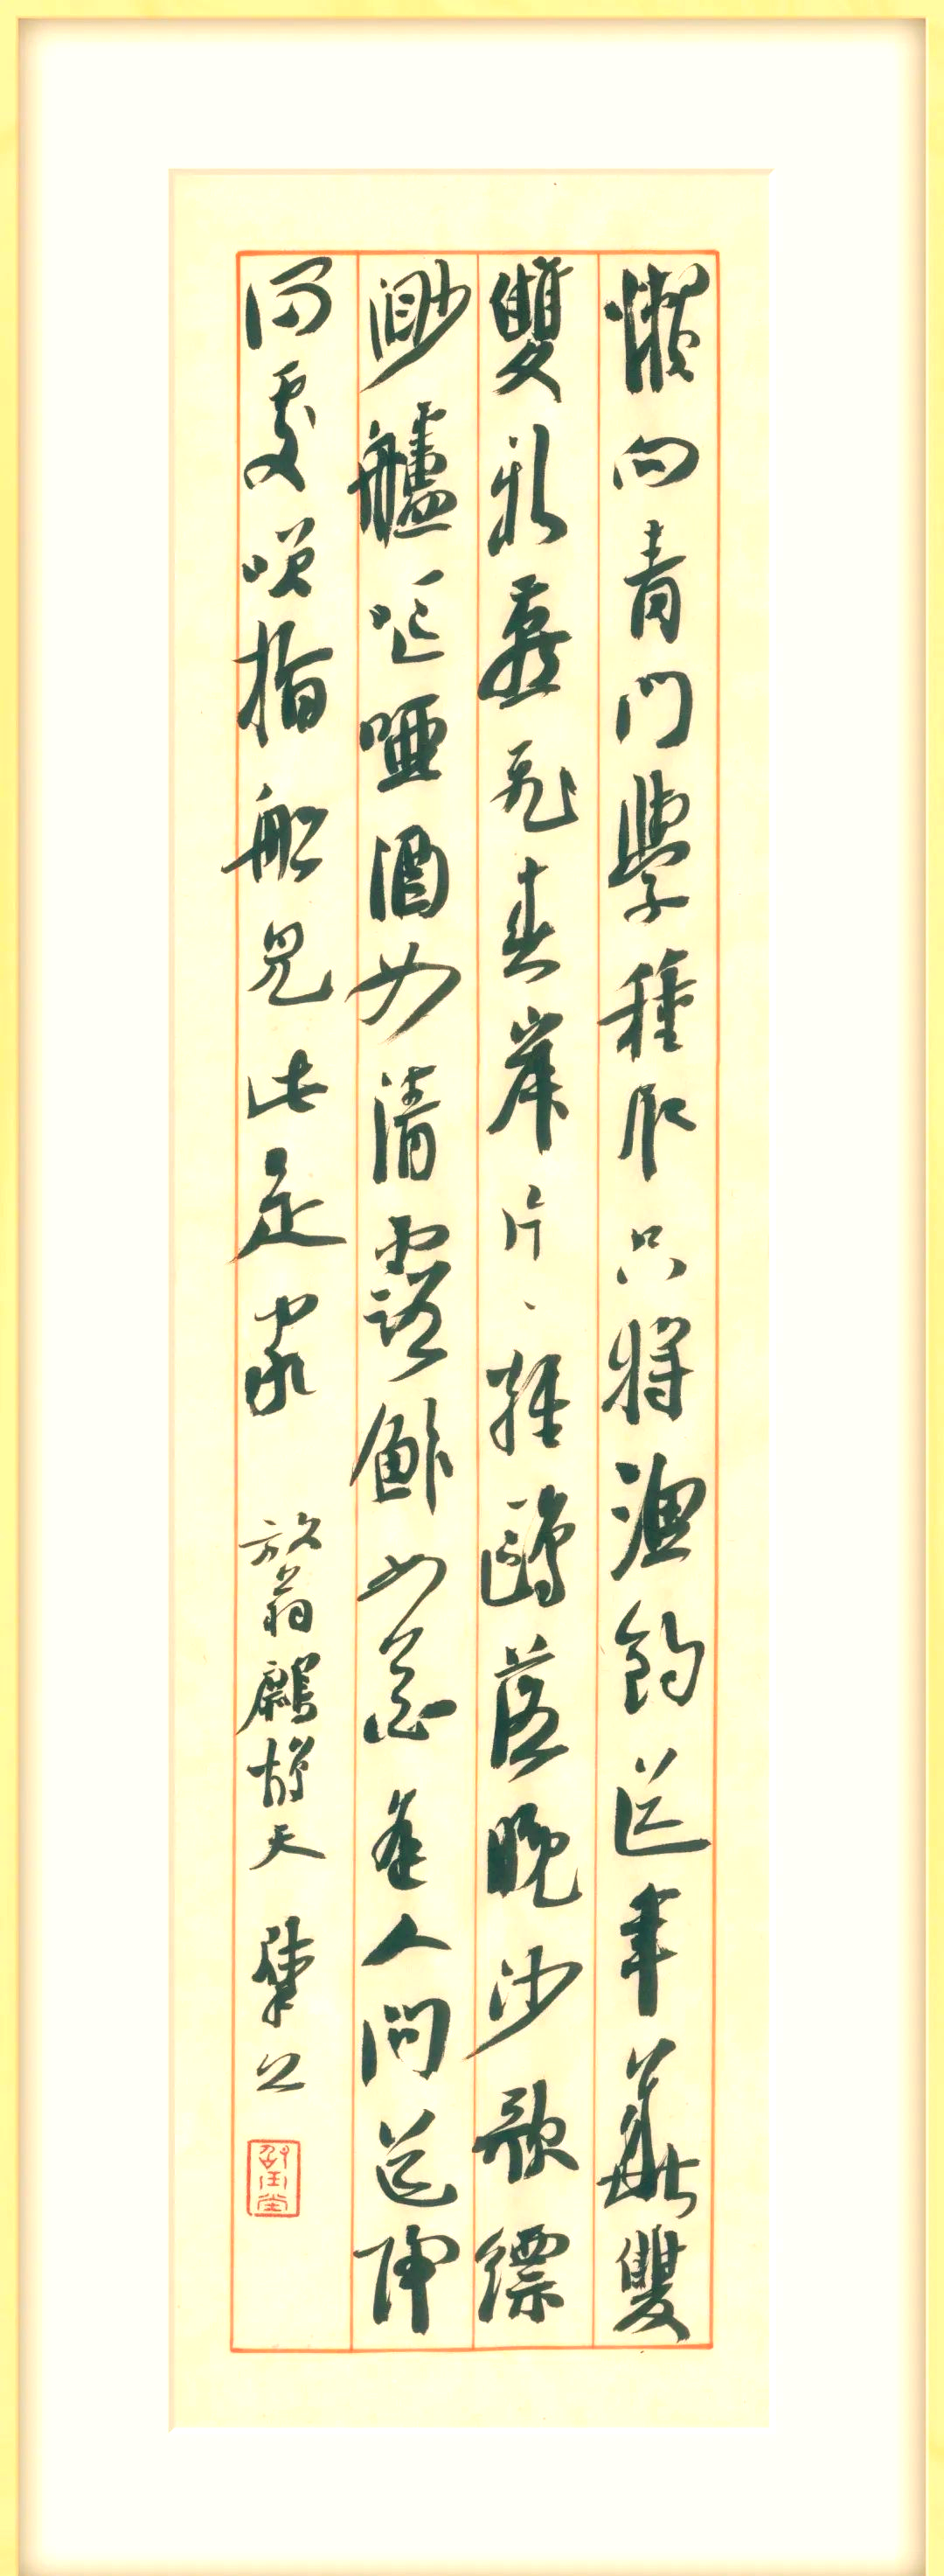 懶向青門學種瓜只將漁釣送年華雙
雙新燕飛春岸片、輕鷗落晚沙歌縹
渺艫嘔啞酒如清露鮓如花逢人問道歸
何處咲指船兒此是家 放翁鷓鴣天